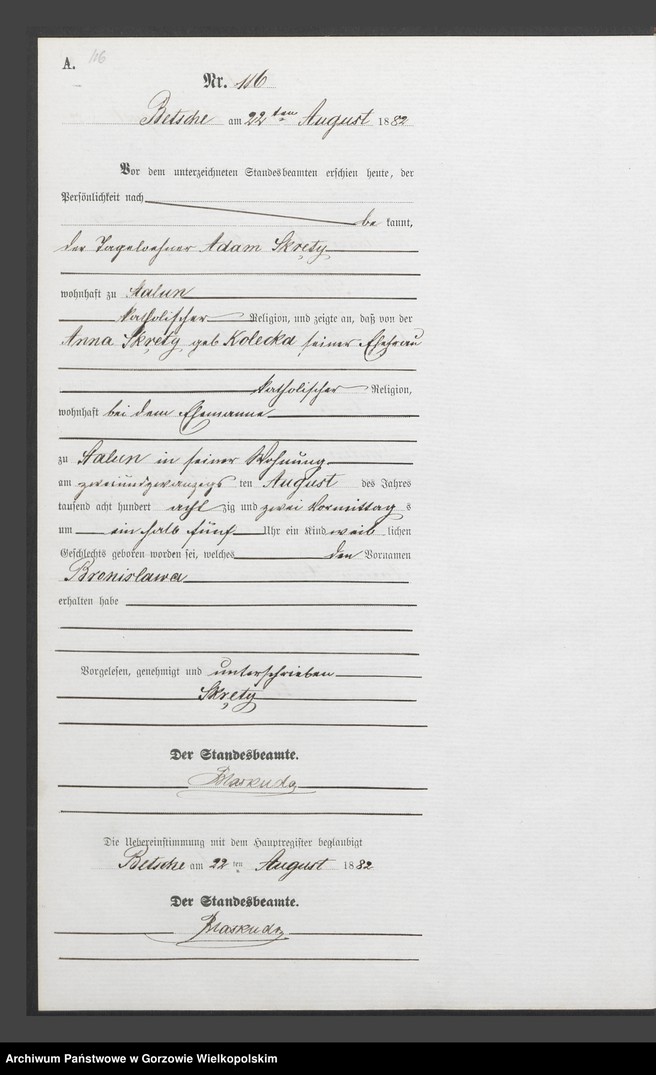 A. 116
Nr. 116
Betsche am 22ten August 1882
Vor dem unterzeichneten Standesbeamten erschien heute, der
Persönlichkeit nach
be kannt,
der Tageloehner Adam Skręty
wohnhaft zu Stalun
katholischer Religion, und zeigte an, daß von der
Anna Skręty geb Kolecka seiner Ehefrau
katholischer Religion,
wohnhaft bei dem Ehemanne
zu Stalun in seiner Wohnung
am zweiundzwanzigs ten August des Jahres
tausend acht hundert acht zig und zwei Vormittag s
um ein halb fünf Uhr ein Kind weib lichen
Geschlechts geboren worden sei, welches den Vornamen
Bronislawa
erhalten habe
Vorgelesen, genehmigt und unterschrieben
Skręty
Der Standesbeamte.
Die Uebereinstimmung mit dem Hauptregister beglaubigt
Betsche am 22 ten August 1882
Der Standesbeamte.
Archiwum Państwowe w Gorzowie Wielkopolskim